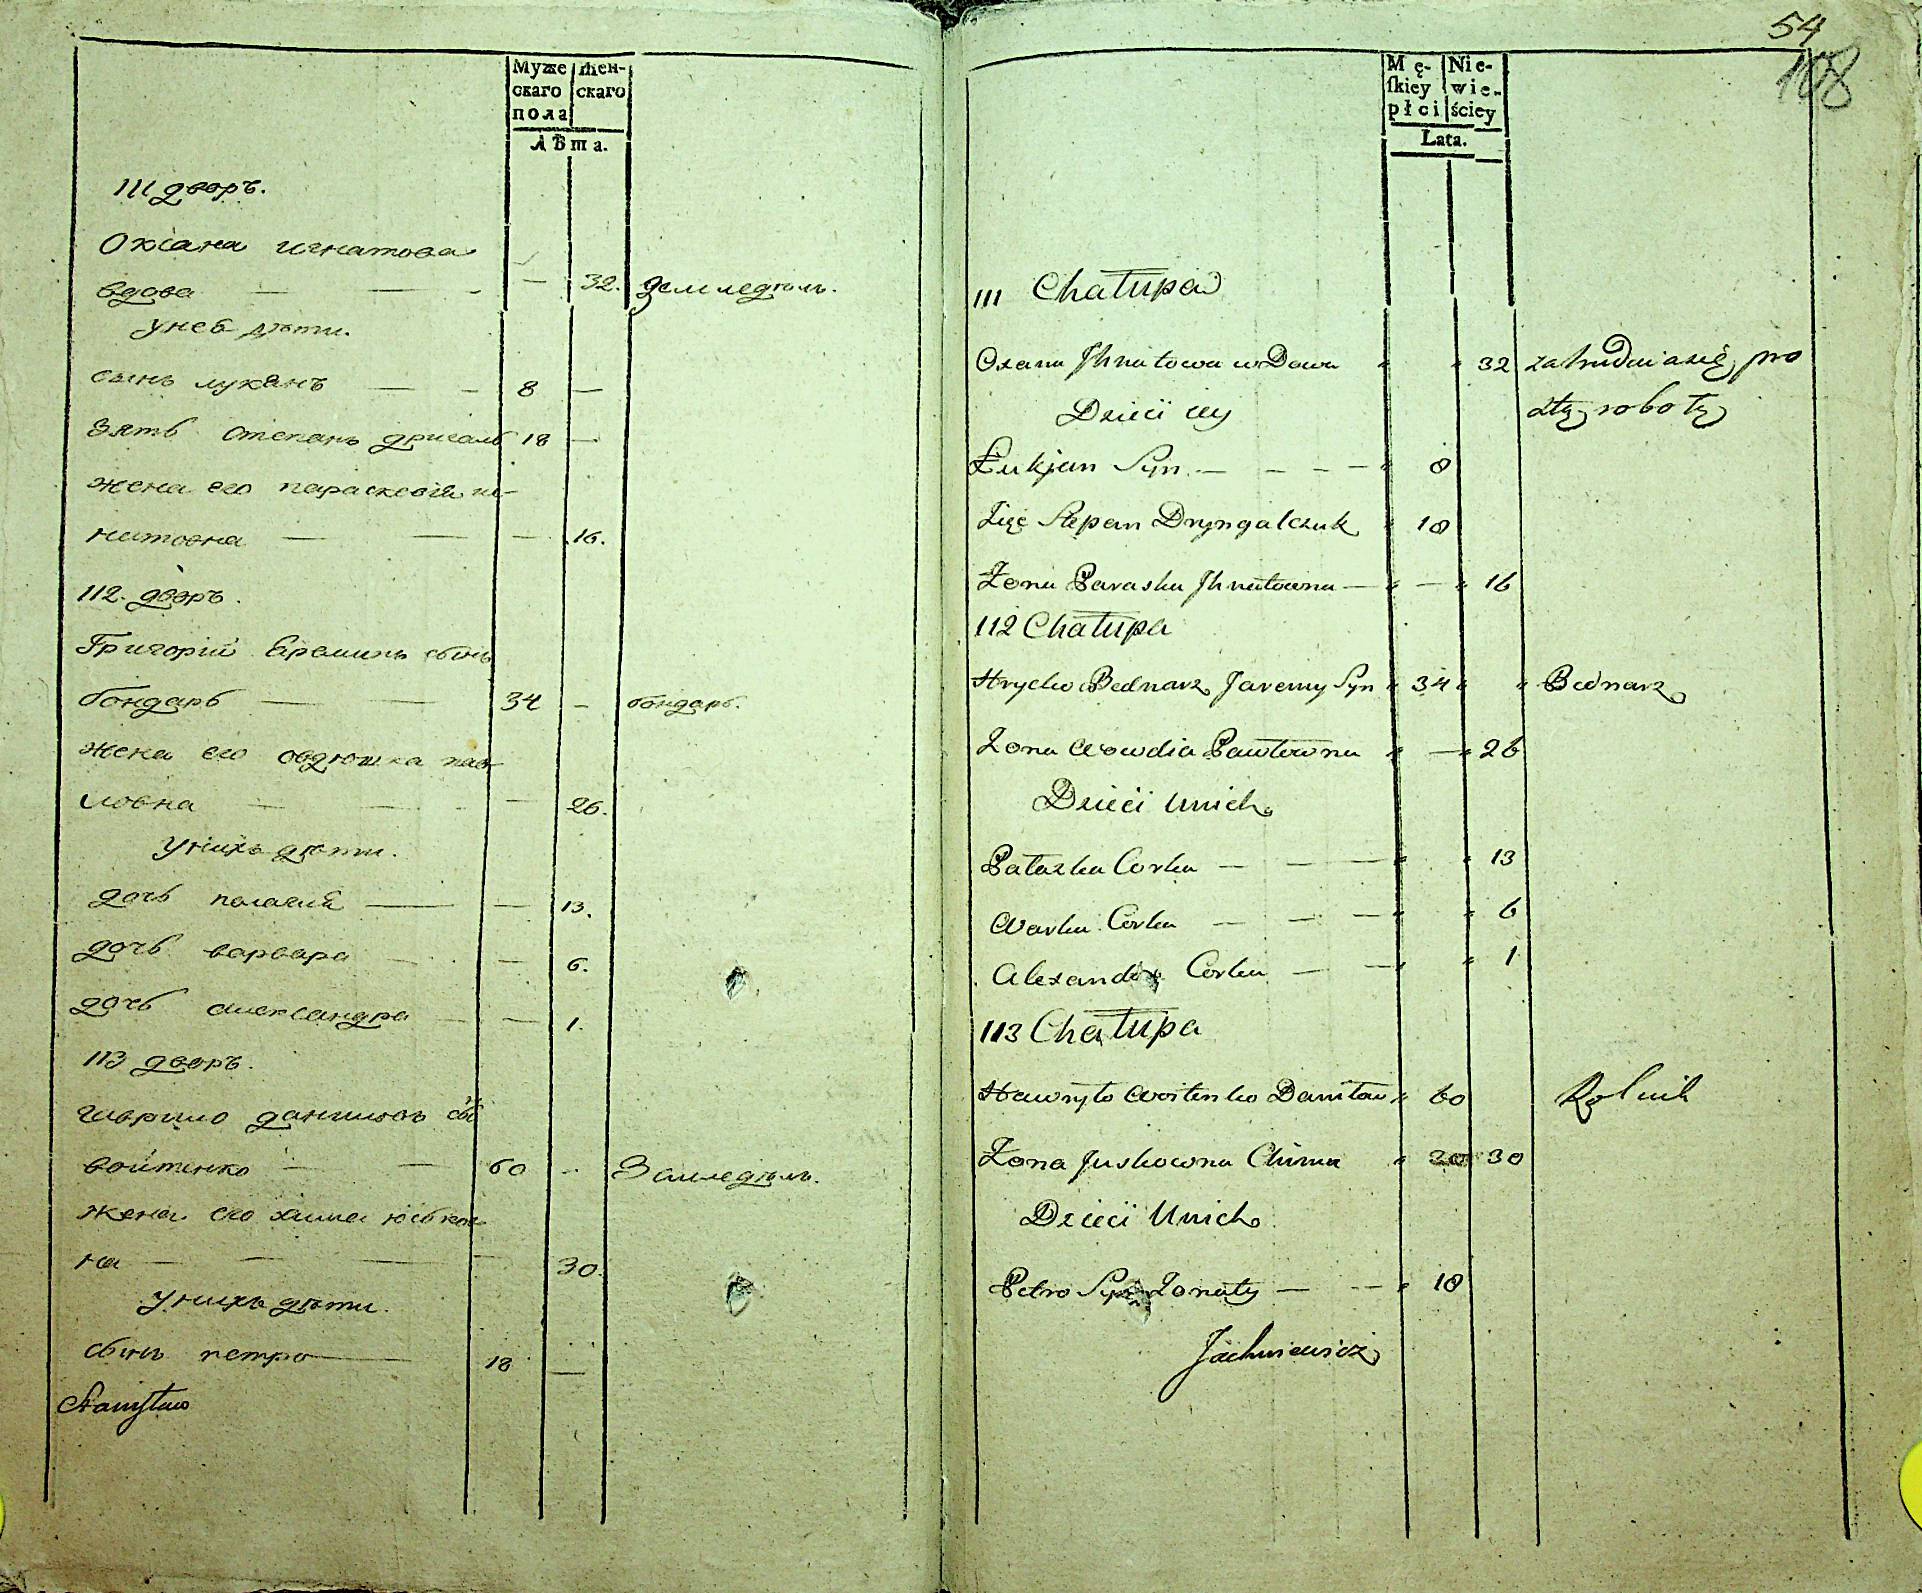 Муже
скаго
пола
Жен-
скаго
Лѣта.
111 дворъ.
Оксана игнатова
вдова — — - — 32. Земледѣль.
унеѣ дѣти.
сынъ лукянъ — - 8 —
Зять степанъ дригаль 18 —
жена его параскевія иг-
натовна — — — 16.
112. дворъ.
Григорій Яремин сынъ
бондарь — — 34 - бондарь.
жена его овдюшка пав-
ловна — — - — 26.
унихъ дѣти.
дочь пелагия — — 13.
дочь варвара — - — 6.
дочь александра — — 1.
113 дворъ.
гаврило даниловъ сы
войтенко — — 60 - Земледѣль.
жена его хима юсков
на — — — — 30.
унихъ дѣти.
сынъ петро — 18 —
Stanisław
54
108
Mę-
ſkiey
płci
Nie-
wie-
ściey
Lata.
111 Chałupa
Oxana Jhnatowa wDowa " " 32 zatrudnia się pro
Dzieci iey stą robotą
Łukjan Syn — - - — " 8
Zięć Stepan Dryngalczuk " 18
Żona Paraska Jhnatowna — " — " 16
112 Chałupa
Hryćko Bednarz Jaremy Syn " 34 " " Bednarz
Zona Owdia Pawłowna " — " 26
Dzieci Unich
Pałazka Corka — — — " " 13
Warka Corka — — — " " 6
Alexandra Corka — — " " 1
113 Chałupa
Hawryło Woitenko Daniłow " 60 Rolnik
Żona Juskowna Chima " 30 30
Dzieci Unich
Petro Syn Żonaty — — " 18
Jachniewicz